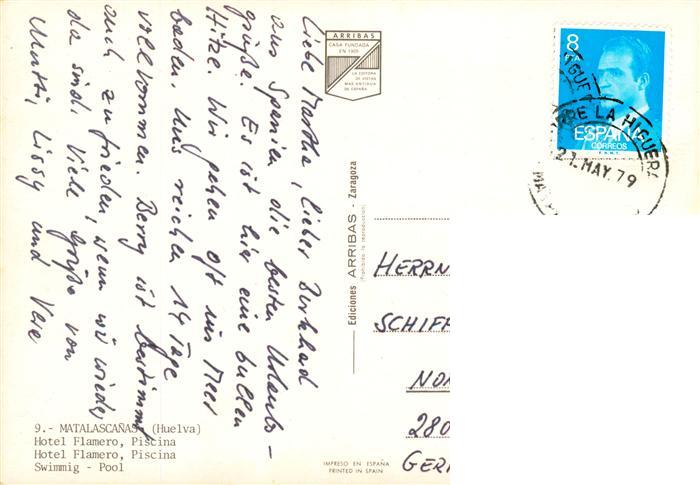 Liebe Martha, lieber Burkhard
aus Spanien die besten Urlaubs-
grüße. Es ist hier eine bullen
Hitze. Wir gehen oft ins Meer
baden. Uns reichen 14 Tage
vollkommen. Berry ist bestimmt
auch zufrieden, wenn wir wieder
da sind. Viele Grüße von
Mutti, Lissy und Vera
9.- MATALASCAÑAS (Huelva)
Hotel Flamero, Piscina
Hotel Flamero, Piscina
Swimmig - Pool
ARRIBAS
CASA FUNDADA
EN 1905
LA EDITORA
DE VISTAS
MAS ANTIGUA
DE ESPAÑA
Ediciones ARRIBAS - Zaragoza
(Prohibida la reproducción)
IMPRESO EN ESPAÑA
PRINTED IN SPAIN
8
PTA
ESPAÑA
CORREOS
F.N.M.T.
RE LA HIGUERA
21. MAY. 79
HERRN
SCHIFF
NO
280
GER